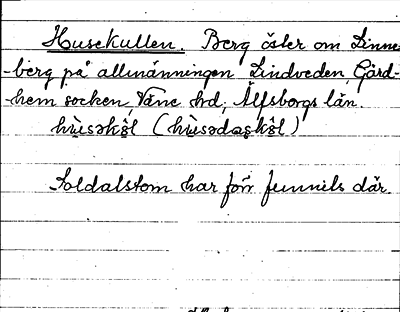 Husekullen. Berg öster om Linne-
-berg på allmänningen Lindveden, Gärd-
-hem socken, Väne hd, Älfsborgs län.
hùsəkə̂l (hùsədaskə̂l)
Soldatstom har förr funnits där.